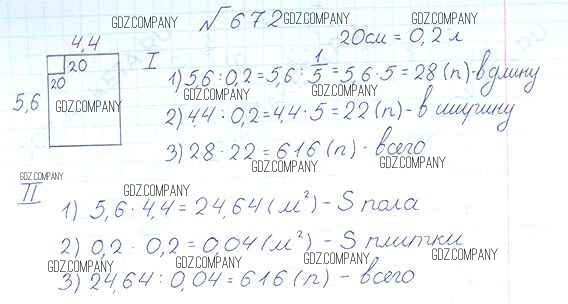 GDZ.COMPANY √672 GDZ.COMPANY GDZ.COMPANY
20см = 0,2 м
4,4
20
20
5,6
GDZ.COMPANY
I
1) 5,6 : 0,2 = 5,6 : 1/5 = 5,6 · 5 = 28 (п) - в длину
GDZ.COMPANY GDZ.COMPANY
2) 4,4 : 0,2 = 4,4 · 5 = 22 (п) - в ширину
GDZ.COMPANY
3) 28 · 22 = 616 (п) - всего
GDZ.COMPANY GDZ.COMPANY
GDZ.COMPANY
II
GDZ.COMPANY
1) 5,6 · 4,4 = 24,64 (м²) - S пола
2) 0,2 · 0,2 = 0,04 (м²) - S плитки
GDZ.COMPANY GDZ.COMPANY GDZ.COMPANY
3) 24,64 : 0,04 = 616 (п) - всего